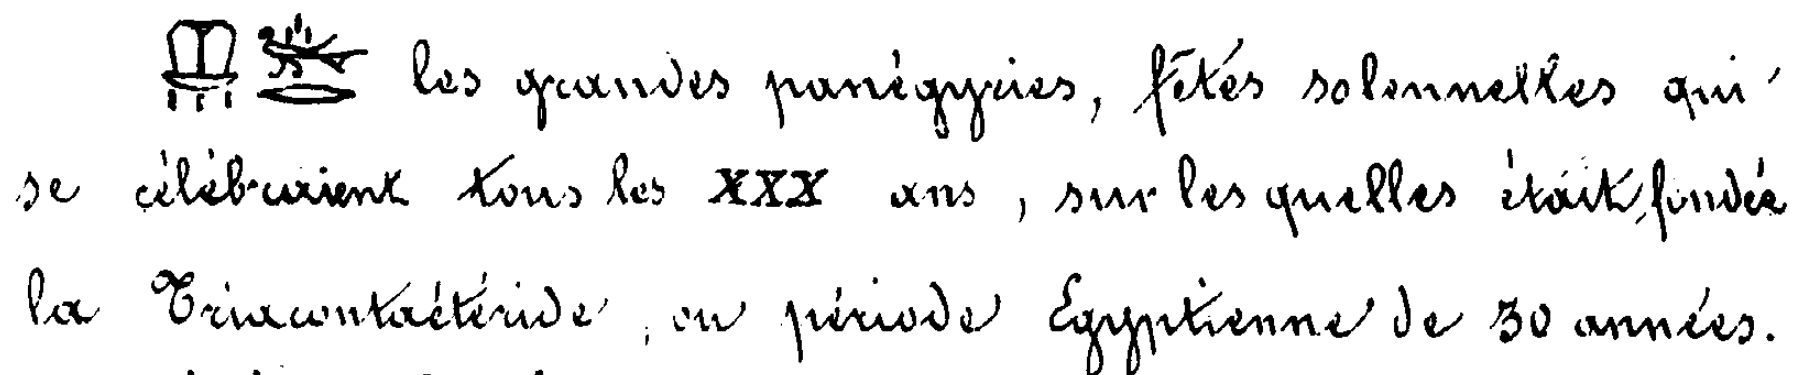 les grandes panégyries, fêtes solennelles qui
se célébraient tous les XXX ans, sur lesquelles était fondée
la Triacontaétéride, ou période Egyptienne de 30 années.